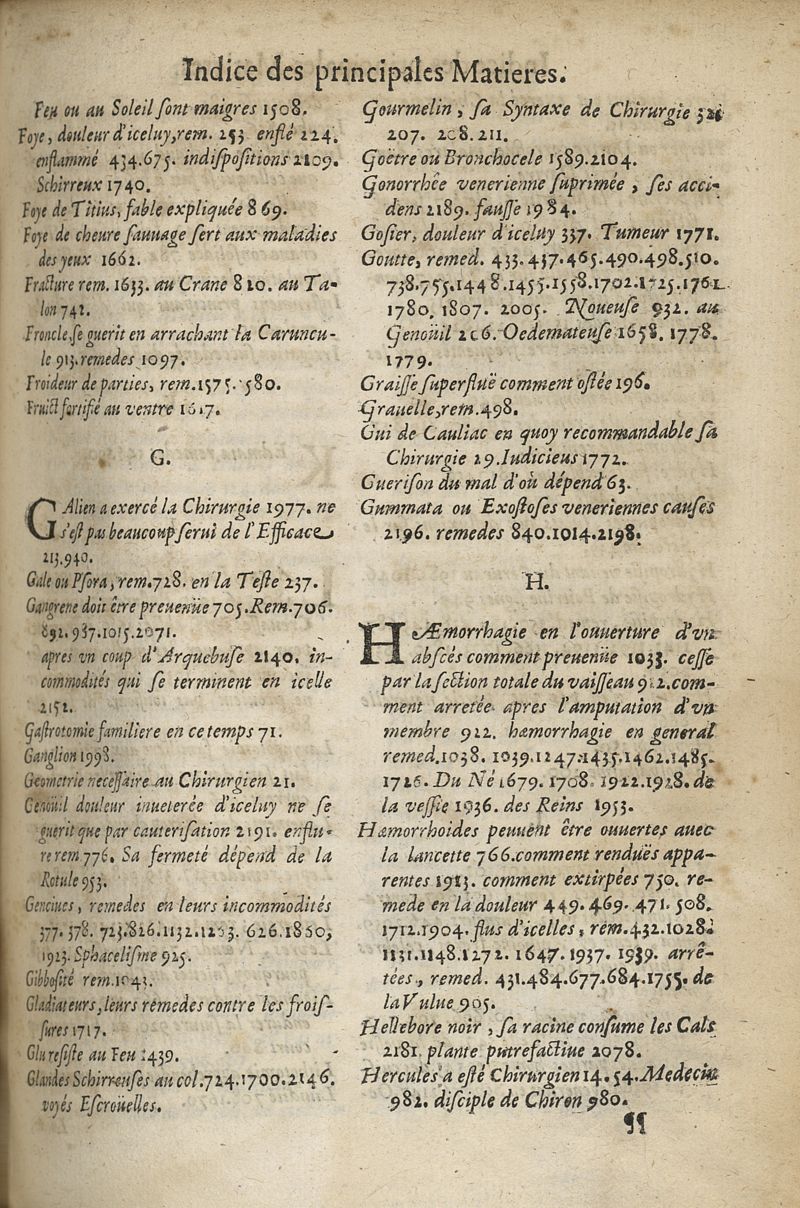 Indice des principales Matieres.
Feu ou au Soleil ſont maigres 1508.
Foye, douleur d'iceluy, rem. 253 enflé 224.
enflammé 434.675. indiſpoſitions 2109.
Schirreux 1740.
Foye de Titius, fable expliquée 869.
Foye de cheure ſauuage ſert aux maladies
des yeux 1662.
Fracture rem. 1633. au Crane 820. au Ta-
lon 742.
Froncle ſe guerit en arrachant la Caruncu-
le 913. remedes 1097.
Froideur de parties, rem. 1575. 580.
Fruict fortifié au ventre
G.
GAlien a exercé la Chirurgie 1977. ne
s'eſt pas beaucoup ſerui de l'Efficace
213.940.
Gale ou Pſora, rem. 728. en la Teſte 237.
Gangrene doit être preuenüe 705. Rem. 706.
892. 987. 1015. 2071.
apres vn coup d'Arquebuſe 2140. in-
commodités qui ſe terminent en icelle
2152.
Gaſtrotomie familiere en ce temps 71.
Ganglion 1998.
Geometrie neceſſaire au Chirurgien 21.
Genoüil douleur inueterée d'iceluy ne ſe
guerit que par cauteriſation 2191. enflu-
re rem 776. Sa fermeté dépend de la
Rotule 953.
Genciues, remedes en leurs incommodités
377. 378. 723.826.1132. 626.1850,
1923. Sphaceliſme 925.
Gibboſité rem. 1043.
Gladiateurs, leurs remedes contre les froiſ-
ſures 1717.
Glu reſiſte au Feu 1439.
Glandes Schirreuſes au col. 724.1700.2146.
voyés Eſcroüelles.
Gourmelin, ſa Syntaxe de Chirurgie
207. 208. 211.
Goëtre ou Bronchocele 1589.2104.
Gonorrhée venerienne ſuprimée, ſes acci-
dens 2189. fauſſe 1984.
Goſier, douleur d'iceluy 337. Tumeur 1771.
Goutte, remed. 433.437.465.490.498.510.
738.755.1448.1455.1558.1702.1725.1761.
1780. 1807. 2005. Noueuſe 932. au
Genoüil 206. Oedemateuſe 1658. 1778.
1779.
Graiſſe ſuperfluë comment oſtée 196.
Grauelle, rem. 498.
Gui de Cauliac en quoy recommandable ſa
Chirurgie 29. Iudicieus 1772.
Gueriſon du mal d'où dépend 63.
Gummata ou Exoſtoſes veneriennes cauſes
2196. remedes 840.1014.2198.
H.
HÆmorrhagie en l'ouuerture d'vn
abſcés comment preuenüe 1033. ceſſe
par la ſection totale du vaiſſeau com-
ment arretée apres l'amputation d'vn
membre 922. hæmorrhagie en general
remed. 1038. 1039.1247.1435.1462.1485.
1726. Du Né 1679. 1708. 1922.1928. de
la veſſie 1936. des Reins 1953.
Hæmorrhoides peuuent être ouuertes auec
la lancette 766. comment renduës appa-
rentes 1913. comment extirpées 750. re-
mede en la douleur 449. 469. 471. 508.
1712.1904. flus d'icelles, rem. 432.1028.
1131.1148.1272. 1647. 1937. 1939. arrê-
tées, remed. 431.484.677.684.1755. de
la Vulue 905.
Hellebore noir, ſa racine conſume les Cals
2181. plante putrefactiue 2078.
Hercules a eſté Chirurgien 14. 54. Medecin
982. diſciple de Chiron 980.
¶¶